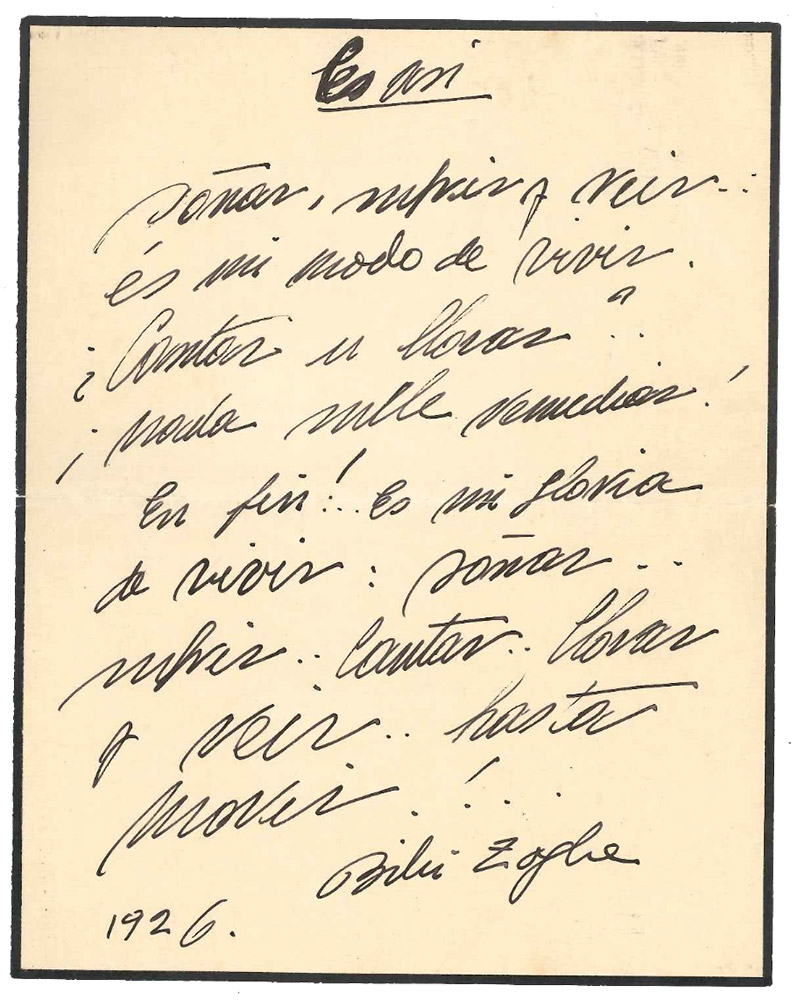 Es asi
soñar, sufrir y reir..:
és mi modo de vivir.
¿Cantar u llorar?..
¡nada sulle remediar!
En fin!.. Es mi gloria
de vivir: soñar...
sufrir.. Cantar.. llorar
y reir.. hasta
morir.!...
Bibi Zogbe
1926.